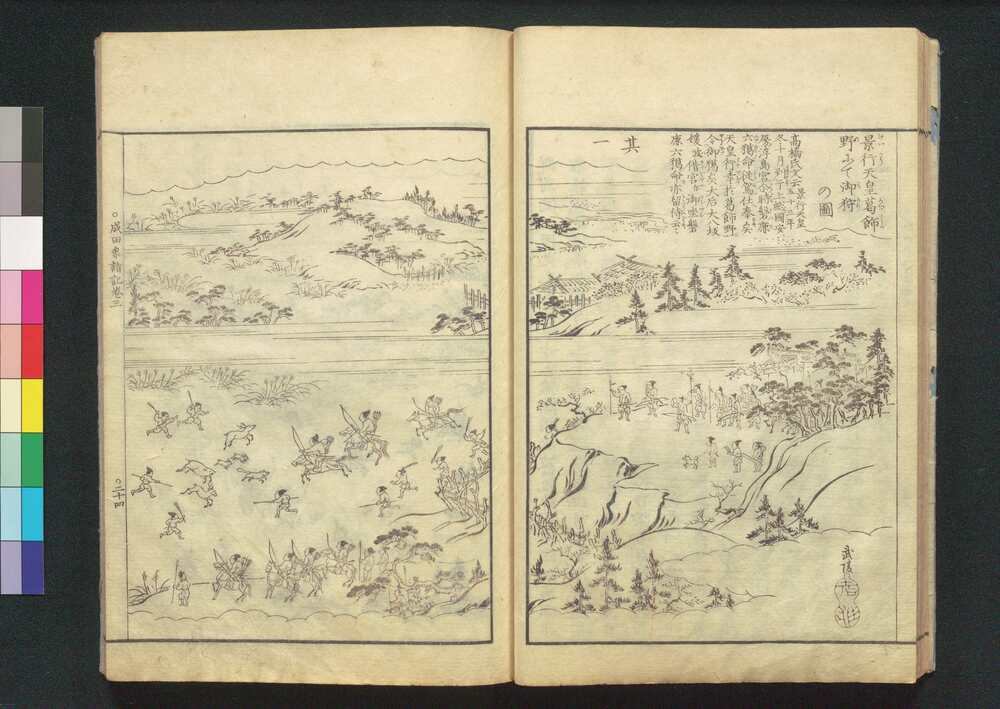 景行天皇葛飾
野にて御狩
の圖
高橋氏文云景行天皇五十三年
冬十月到于上総國安
房浮島宮尒時磐鹿
六獦命従駕仕奉矣
天皇行幸於葛飾野
令御獦矣大后八坂
媛者借宮尒御坐磐
鹿六獦命亦留侍云々
其一
武陵
成田参詣記巻二
二十四